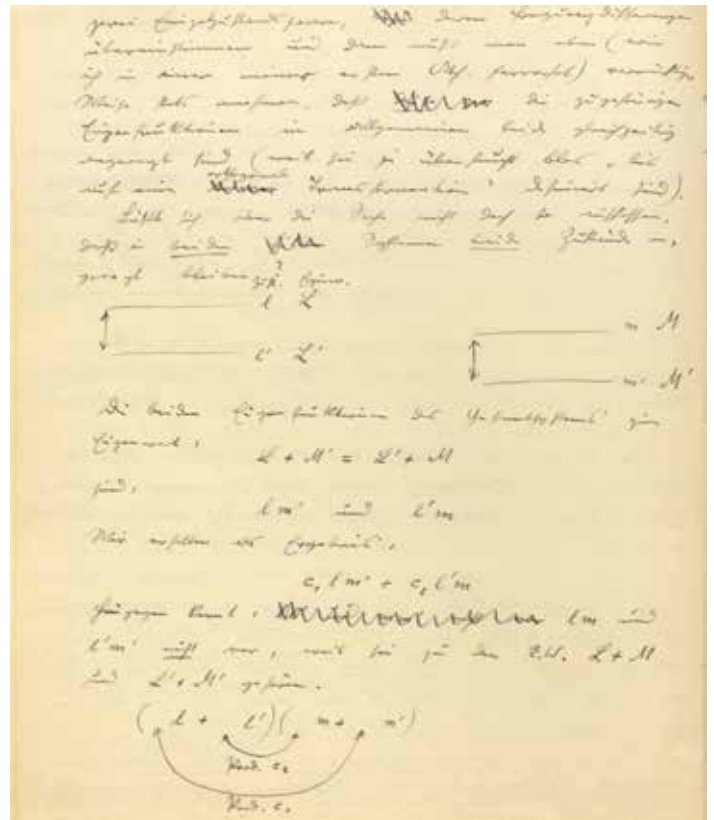 zwei Einzelzustandspaare, deren Energiedifferenzen
übereinstimmen und dann muß man eben (wie
ich in einer meiner ersten Abh.
Weise stets annehmen, daß die zugehörigen
Eigenfunktionen im allgemeinen beide gleichzeitig
angeregt sind (weil sie ja überhaupt blos „bis
auf eine orthogonale Transformation" definiert sind).
Läßt sich aber die Sache nicht doch so auffassen,
daß in beiden Systemen beide Zustände an-
geregt bleiben?
Eigenw.
l L
m M
l' L'
m' M'
Die beiden Eigenfunktionen des Gesamtsystems zum
Eigenwert:
L + M' = L' + M
sind:
l m' und l'm
Wir erhalten als Ergebnis:
c₁ l m' + c₂ l'm
Hingegen kommt lm und
l'm' nicht vor, weil sie zu den E.W. L + M
und L' + M' gehören.
( l + l')( m + m')
Prod. c₂
Prod. c₁